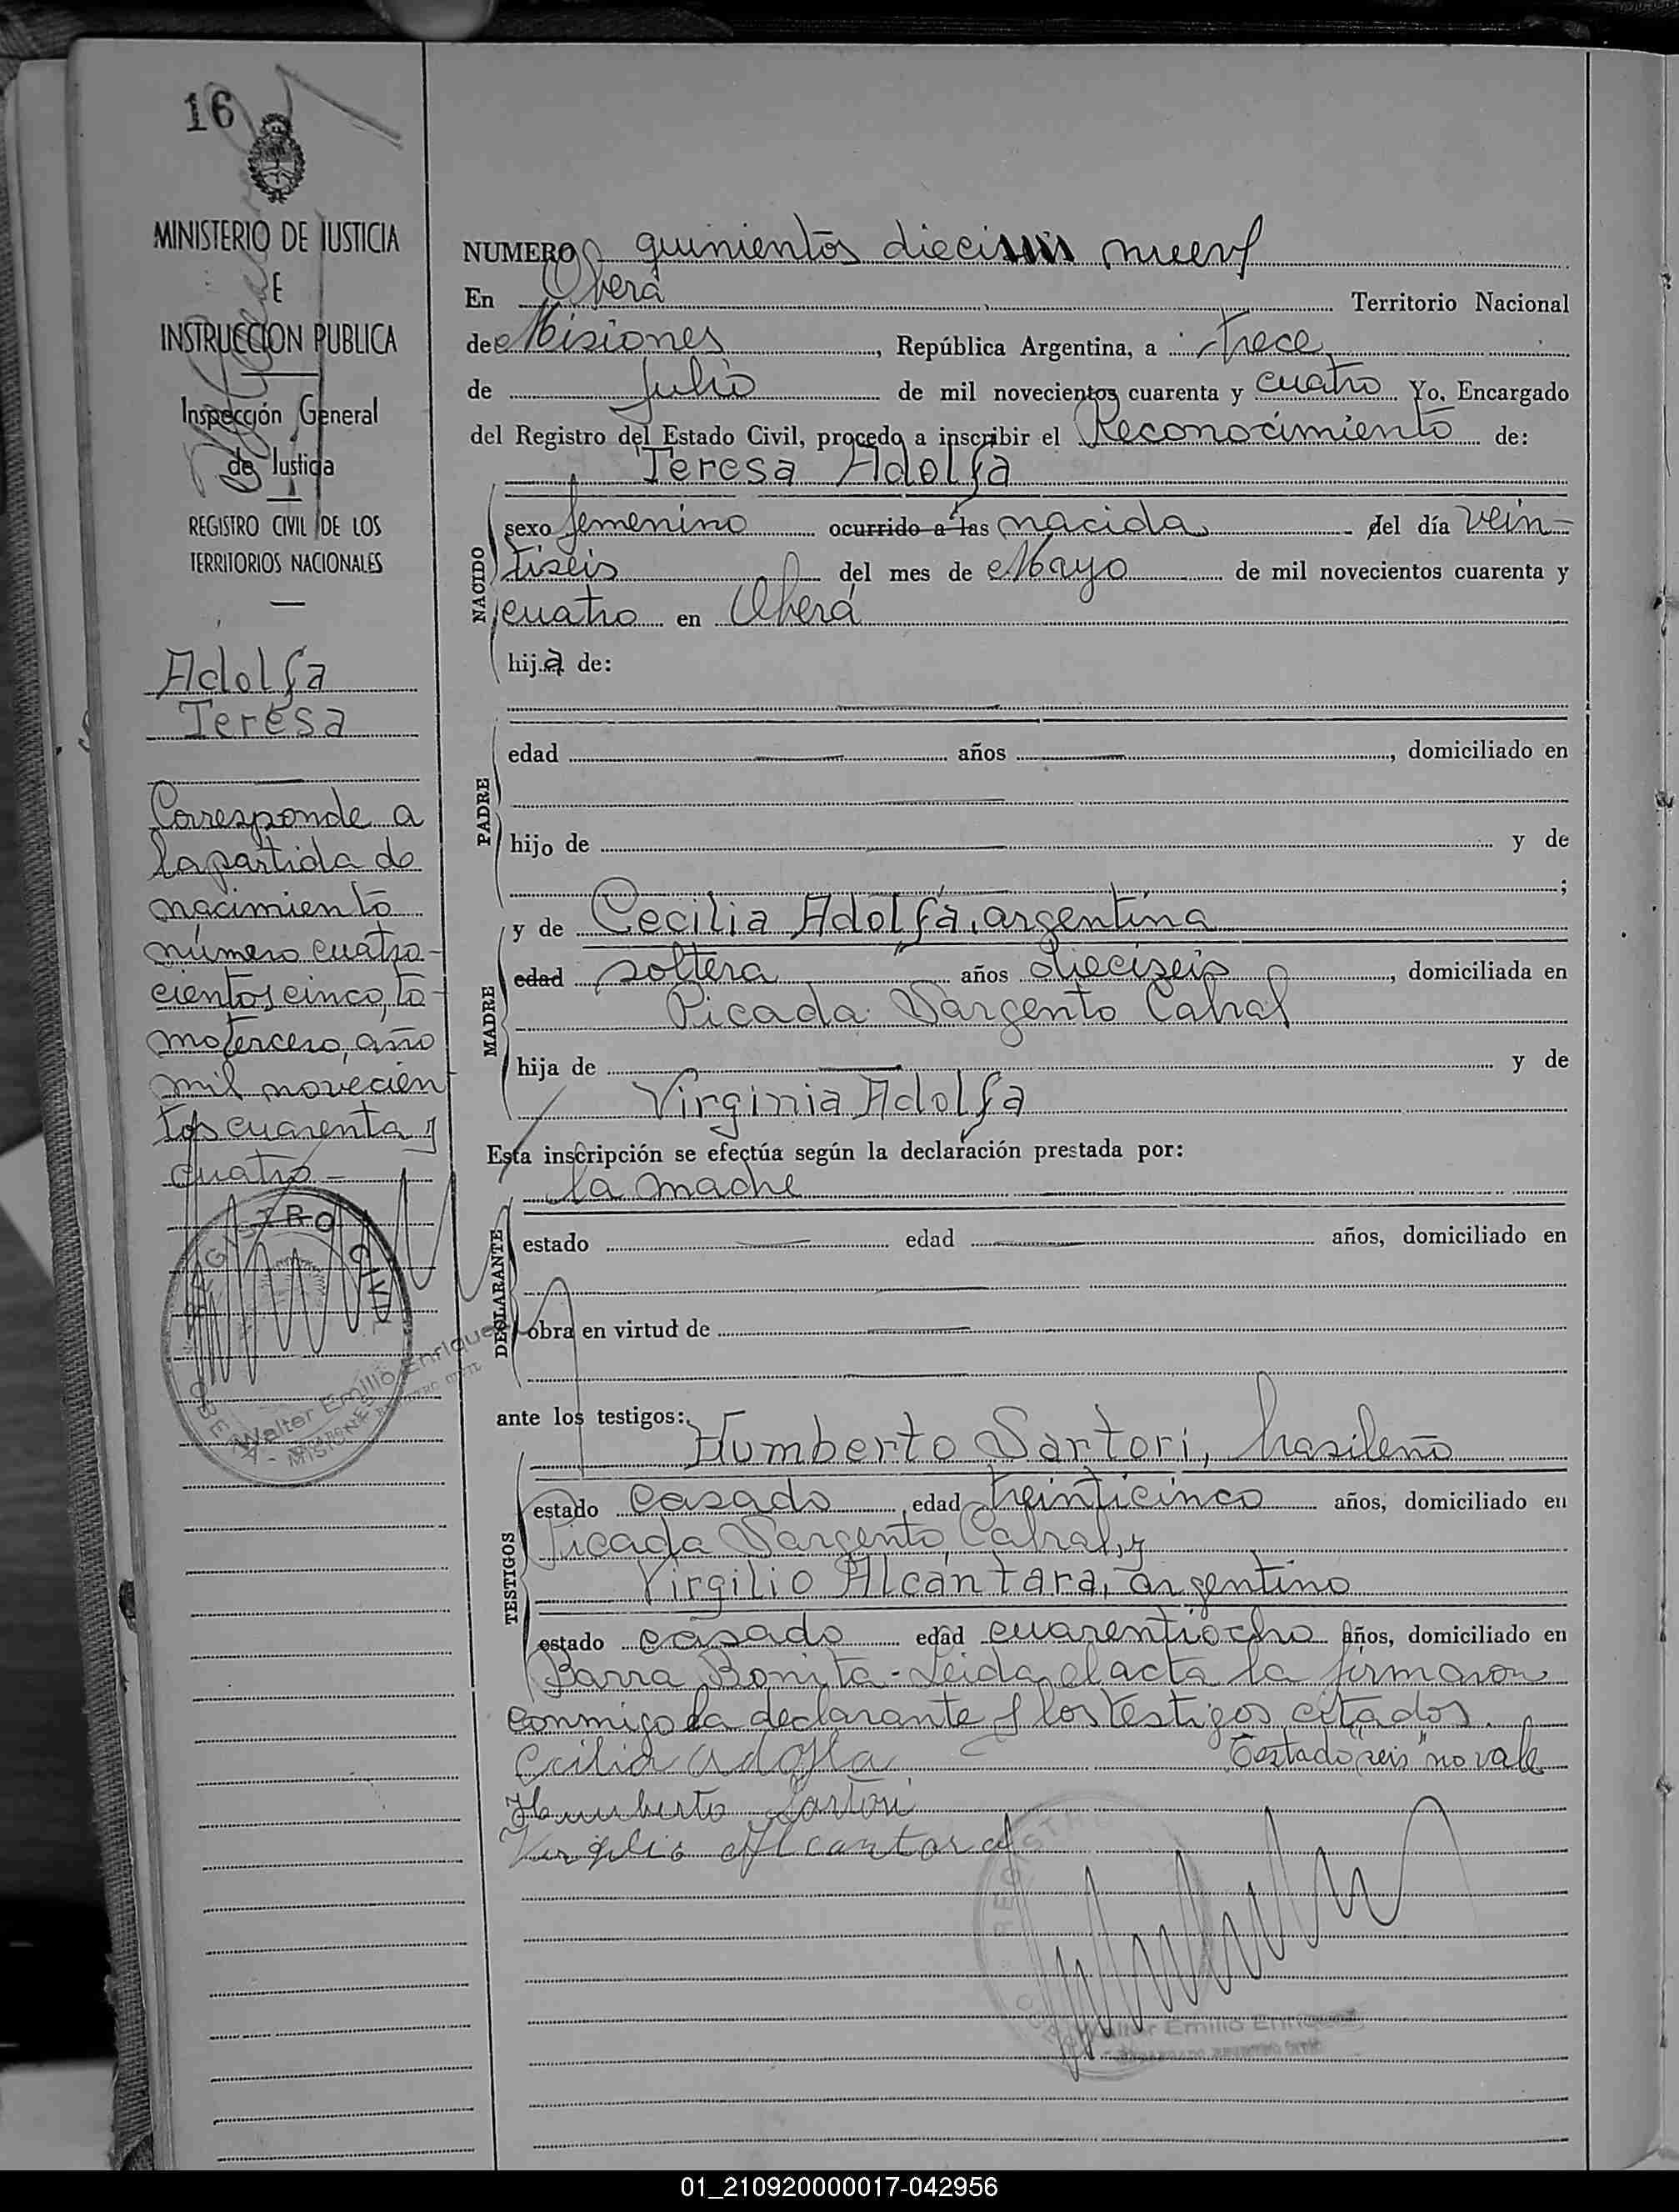 16
MINISTERIO DE JUSTICIA
E
INSTRUCCION PUBLICA
Inspección General
de Justicia
REGISTRO CIVIL DE LOS
TERRITORIOS NACIONALES
Adolfa
Teresa
Corresponde a
la partida de
nacimiento
número cuatro-
cientos cinco, to-
mo tercero, año
mil novecien
tos cuarenta y
cuatro
REGISTRO CIVIL
OBERA - MISIONES
Walter Emilio Enriquez
NUMERO quinientos dieciseis nueve
En Oberá Territorio Nacional
de Misiones, República Argentina, a trece
de Julio de mil novecientos cuarenta y cuatro Yo, Encargado
del Registro del Estado Civil, procedo a inscribir el Reconocimiento de:
Teresa Adolfa
NACIDO
sexo femenino ocurrido a las nacida del día vein-
tiseis del mes de Mayo de mil novecientos cuarenta y
cuatro en Oberá
hija de:
PADRE
edad años, domiciliado en
hijo de y de
;
MADRE
y de Cecilia Adolfa, argentina
edad soltera años dieciseis, domiciliada en
Picada Sargento Cabral
hija de y de
Virginia Adolfa
Esta inscripción se efectúa según la declaración prestada por:
la madre
DECLARANTE
estado edad años, domiciliado en
obra en virtud de
ante los testigos:
Humberto Sartori, brasileño
TESTIGOS
estado casado edad treinticinco años, domiciliado en
Picada Sargento Cabral, y
Virgilio Alcántara, argentino
estado casado edad cuarentiocho años, domiciliado en
Barra Bonita - Leida el acta la firmaron
conmigo la declarante y los testigos citados.
Cecilia Adolfa Testado "seis" no vale
Humberto Sartori
Virgilio Alcantara
REGISTRO
Walter Emilio Enriquez
01_210920000017-042956